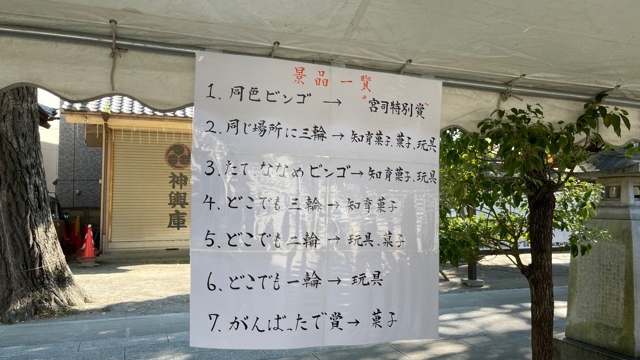 景品一覧
1. 同色ビンゴ → "宮司特別賞"
2. 同じ場所に三輪 → 知育菓子、菓子、玩具
3. たて、ななめビンゴ → 知育菓子、玩具
4. どこでも三輪 → 知育菓子
5. どこでも二輪 → 玩具、菓子
6. どこでも一輪 → 玩具
7. がんばったで賞 → 菓子
神輿庫